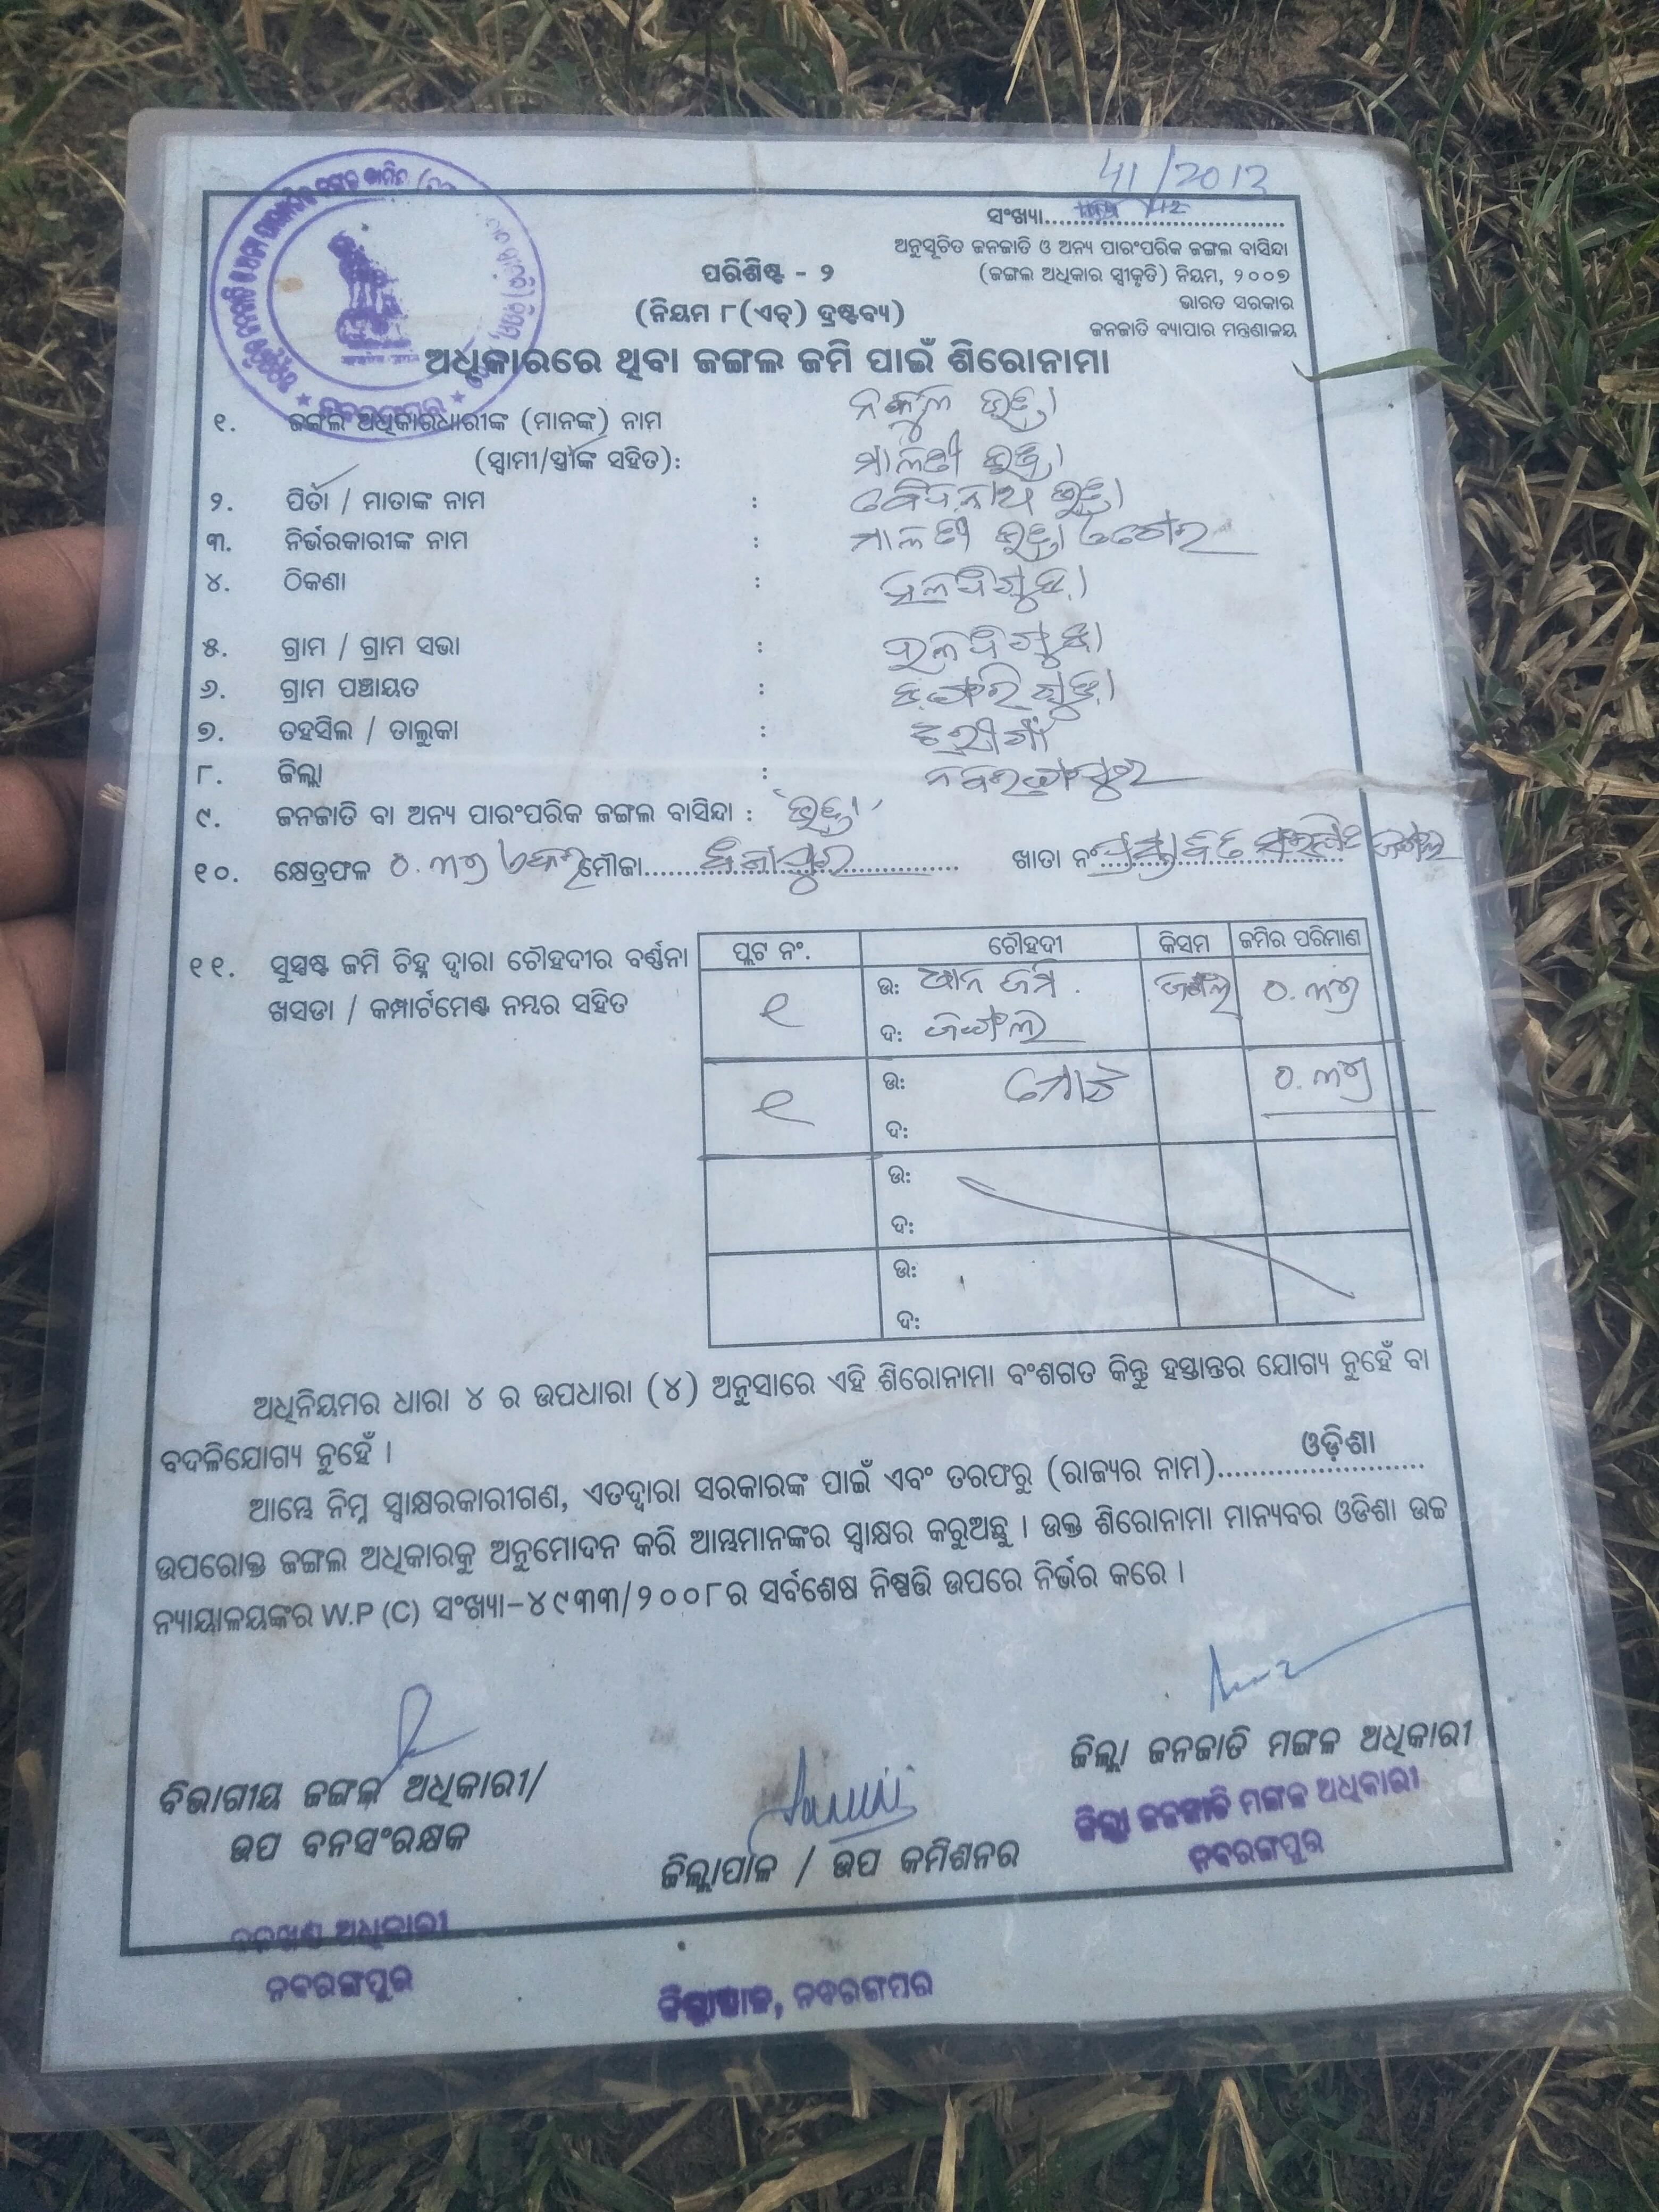 41/2012
ସଂଖ୍ୟା
ଅନୁସୂଚିତ ଜନଜାତି ଓ ଅନ୍ୟ ପାରଂପରିକ ଜଙ୍ଗଲ ବାସିନ୍ଦା
(ଜଙ୍ଗଲ ଅଧିକାର ସ୍ବୀକୃତି) ନିୟମ, ୨୦୦୭
ଭାରତ ସରକାର
ଜନଜାତି ବ୍ୟାପାର ମନ୍ତ୍ରଣାଳୟ
ପରିଶିଷ୍ଟ - ୨
(ନିୟମ ୮(ଏଚ୍) ଦ୍ରଷ୍ଟବ୍ୟ)
ଅଧିକାରରେ ଥିବା ଜଙ୍ଗଲ ଜମି ପାଇଁ ଶିରୋନାମା
୧. ଜଙ୍ଗଲ ଅଧିକାରଧାରୀଙ୍କ (ମାନଙ୍କ) ନାମ ନକୁଳ ଭତ୍ରା
(ସ୍ବାମୀ/ସ୍ତ୍ରୀଙ୍କ ସହିତ): ମାଳତୀ ଭତ୍ରା
୨. ପିତା / ମାତାଙ୍କ ନାମ : ବୈଦନାଥ ଭତ୍ରା
୩. ନିର୍ଭରକାରୀଙ୍କ ନାମ : ମାଳତୀ ଭତ୍ରା
୪. ଠିକଣା :
୫. ଗ୍ରାମ / ଗ୍ରାମ ସଭା :
୬. ଗ୍ରାମ ପଞ୍ଚାୟତ :
୭. ତହସିଲ / ତାଲୁକା : ଝରୀଗାଁ
୮. ଜିଲ୍ଲା : ନବରଙ୍ଗପୁର
୯. ଜନଜାତି ବା ଅନ୍ୟ ପାରଂପରିକ ଜଙ୍ଗଲ ବାସିନ୍ଦା : 'ଭତ୍ରା'
୧୦. କ୍ଷେତ୍ରଫଳ ୦.୩୬ ଏକର ମୌଜା ଖାତା ନଂ ପ୍ରସ୍ତାବିତ ସଂରକ୍ଷିତ ଜଙ୍ଗଲ
୧୧. ସୁସ୍ପଷ୍ଟ ଜମି ଚିହ୍ନ ଦ୍ୱାରା ଚୌହଦୀର ବର୍ଣ୍ଣନା
ଖସଡା / କମ୍ପାର୍ଟମେଣ୍ଟ ନମ୍ବର ସହିତ
ପ୍ଲଟ ନଂ. ଚୌହଦୀ କିସମ ଜମିର ପରିମାଣ
୧ ଉ: ଜମି ଜଙ୍ଗଲ ୦.୩୬
ଦ: ଜଙ୍ଗଲ
୧ ଉ: ମୋଟ ୦.୩୬
ଦ:
ଉ:
ଦ:
ଉ:
ଦ:
ଅଧିନିୟମର ଧାରା ୪ ର ଉପଧାରା (୪) ଅନୁସାରେ ଏହି ଶିରୋନାମା ବଂଶଗତ କିନ୍ତୁ ହସ୍ତାନ୍ତର ଯୋଗ୍ୟ ନୁହେଁ ବା
ବଦଳିଯୋଗ୍ୟ ନୁହେଁ ।
ଆମ୍ଭେ ନିମ୍ନ ସ୍ୱାକ୍ଷରକାରୀଗଣ, ଏତଦ୍ଦ୍ୱାରା ସରକାରଙ୍କ ପାଇଁ ଏବଂ ତରଫରୁ (ରାଜ୍ୟର ନାମ) ଓଡ଼ିଶା
ଉପରୋକ୍ତ ଜଙ୍ଗଲ ଅଧିକାରକୁ ଅନୁମୋଦନ କରି ଆମ୍ଭମାନଙ୍କର ସ୍ୱାକ୍ଷର କରୁଅଛୁ । ଉକ୍ତ ଶିରୋନାମା ମାନ୍ୟବର ଓଡିଶା ଉଚ୍ଚ
ନ୍ୟାୟାଳୟଙ୍କର W.P (C) ସଂଖ୍ୟା-୪୯୩୩/୨୦୦୮ର ସର୍ବଶେଷ ନିଷ୍ପତ୍ତି ଉପରେ ନିର୍ଭର କରେ ।
ବିଭାଗୀୟ ଜଙ୍ଗଲ ଅଧିକାରୀ/
ଉପ ବନସଂରକ୍ଷକ
ବନଖଣ୍ଡ ଅଧିକାରୀ
ନବରଙ୍ଗପୁର
ଜିଲ୍ଲାପାଳ / ଉପ କମିଶନର
ଜିଲ୍ଲାପାଳ, ନବରଙ୍ଗପୁର
ଜିଲ୍ଲା ଜନଜାତି ମଙ୍ଗଳ ଅଧିକାରୀ
ଜିଲ୍ଲା ଜନଜାତି ମଙ୍ଗଳ ଅଧିକାରୀ
ନବରଙ୍ଗପୁର